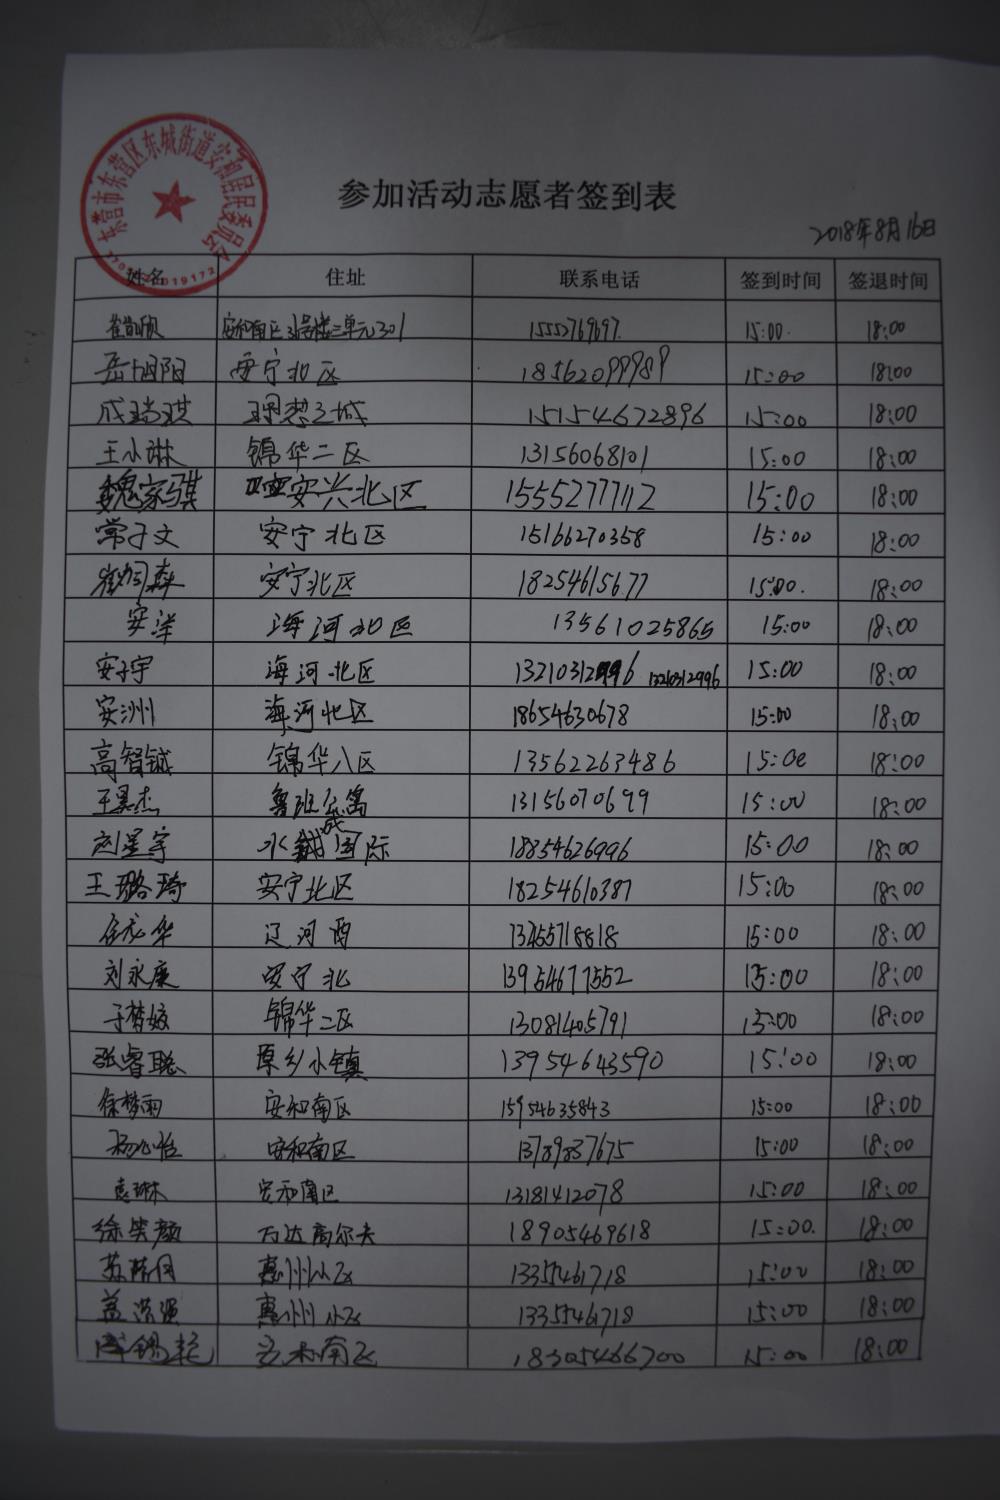 东营市东营区东城街道安和居民委员会
参加活动志愿者签到表
2018年8月16日
姓名 住址 联系电话 签到时间 签退时间
崔凯欣 安和南区3号楼二单元301 15552769697 15:00 18:00
岳旭阳 安宁北区 18562099989 15:00 18:00
成瑞琪 理想之城 15154672896 15:00 18:00
王小琳 锦华二区 13156068101 15:00 18:00
魏家骐 安兴北区 15552777112 15:00 18:00
常子文 安宁北区 15166270358 15:00 18:00
安宁北区 18254615677 15:00 18:00
安洋 海河北区 13561025865 15:00 18:00
安子宇 海河北区 13210312996 15:00 18:00
安洲 海河北区 18654630678 15:00 18:00
高智铖 锦华八区 13562263486 15:00 18:00
王昊杰 鲁班公寓 13156070699 15:00 18:00
刘星宇 水城国际 18854626996 15:00 18:00
王璐琦 安宁北区 18254610387 15:00 18:00
辽河西 13455718818 15:00 18:00
刘永康 安宁北 13954677552 15:00 18:00
于梦姣 锦华二区 13081405791 15:00 18:00
张睿聪 原乡小镇 13954643590 15:00 18:00
徐梦雨 安和南区 15954635843 15:00 18:00
杨心怡 安和南区 13789837675 15:00 18:00
袁琳 安和南区 13181412078 15:00 18:00
徐笑颜 万达高尔夫 18905469618 15:00 18:00
惠州小区 13355461718 15:00 18:00
惠州小区 13355461718 15:00 18:00
安和南区 18305466700 15:00 18:00